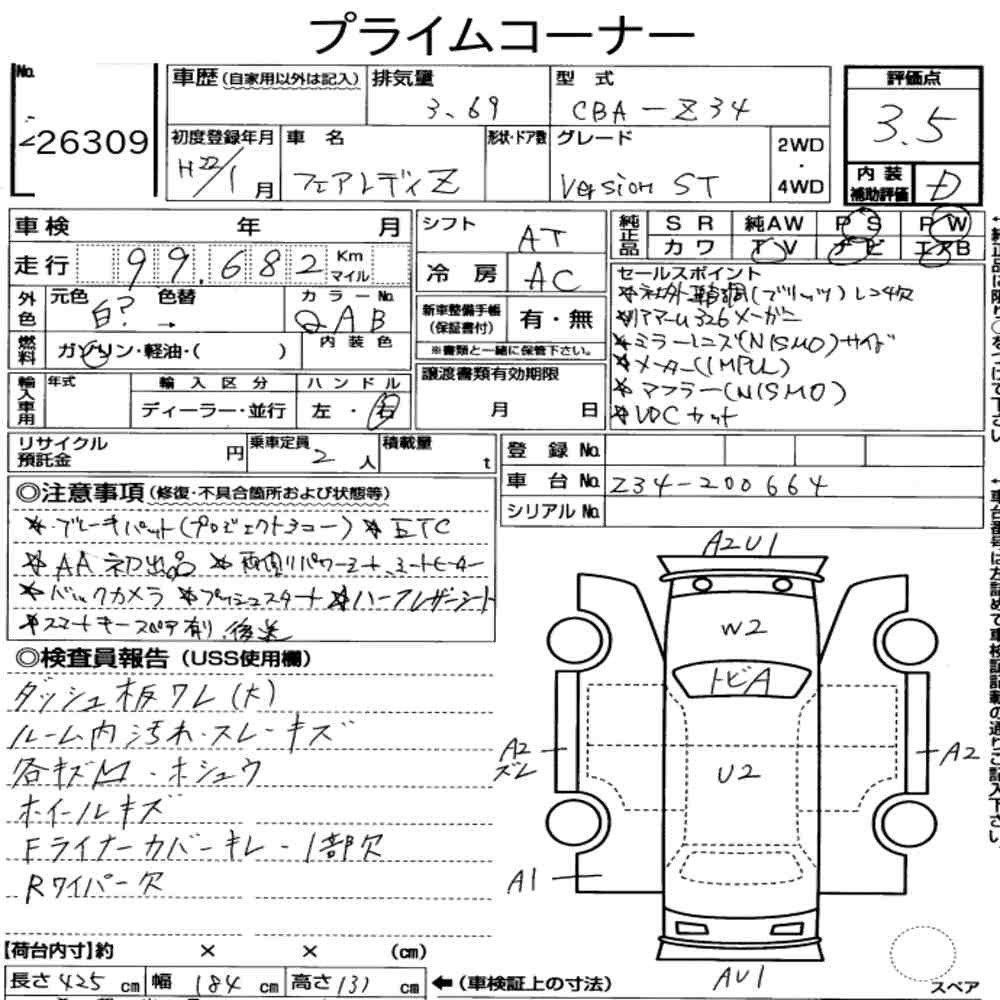 プライムコーナー
No.
26309
車歴(自家用以外は記入) 排気量 型式
3.69 CBA-Z34
初度登録年月 車名 形状・ドア数 グレード
H22/1月 フェアレディZ Version ST
2WD
・
4WD
評価点
3.5
内装
補助評価
D
車検 年 月
走行 99,682 Km マイル
外色 元色 白? 色替 → カラーNo. QAB
燃料 ガソリン・軽油・( ) 内装色
輸入車用 年式 輸入区分 ハンドル
ディーラー・並行 左・右
シフト AT
冷房 AC
新車整備手帳
(保証書付) 有・無
※書類と一緒に保管下さい。
譲渡書類有効期限
月 日
純正品 SR 純AW PS PW
カワ TV ナビ エアB
セールスポイント
*社外車高調(ブリッツ)レンチ欠
*リアアーム326メーガニ
*ミラーレンズ(NISMO)サイド
*メーター(IMPUL)
*マフラー(NISMO)
*VDCカット
リサイクル
預託金 円 乗車定員 2人 積載量 t
登録No.
車台No. Z34-200664
シリアルNo.
◎注意事項(修復・不具合箇所および状態等)
*ブレーキパット(プロジェクトミュー) *ETC
*AA初出品 *両側リパワーシート、シートヒーター
*バックカメラ *プッシュスタート *ハーフレザーシート
*スマートキースペア有り、後送
◎検査員報告(USS使用欄)
ダッシュ板ワレ(大)
ルーム内汚れ・スレ・キズ
各キズ凹・ホシュウ
ホイールキズ
Fライナーカバーキレ・1部欠
Rワイパー欠
A2U1
W2
トビA
A2
ズレ
U2
A2
A1
AU1
スペア
【荷台内寸】約 × × (cm)
長さ 425 cm 幅 184 cm 高さ 131 cm ←(車検証上の寸法)
←純正品に限り○をつけて下さい。
←車台番号は左詰めで車検証記載の通りご記入下さい。